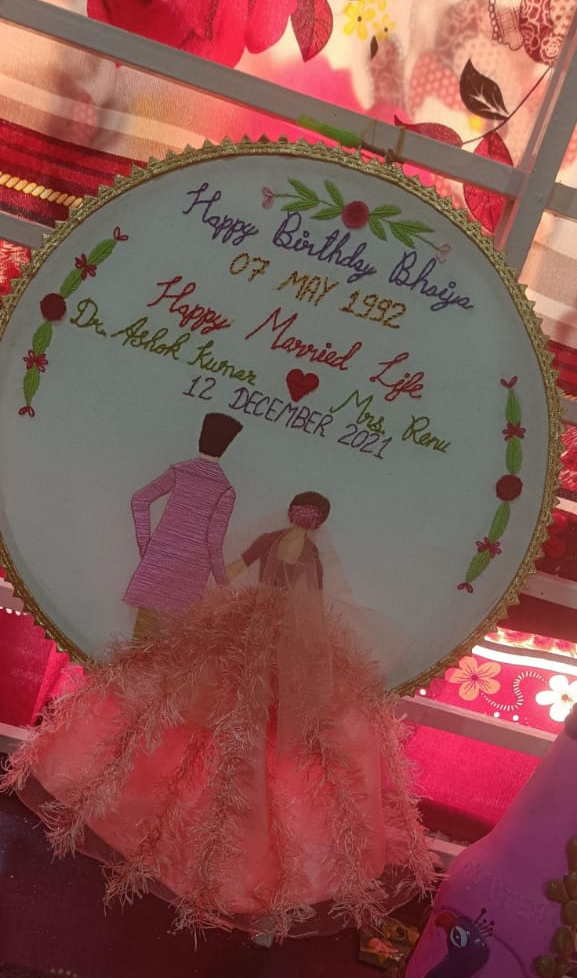 Happy Birthday Bhaiya
07 MAY 1992
Happy Married Life
Dr. Ashok Kumar Mrs. Renu
12 DECEMBER 2021